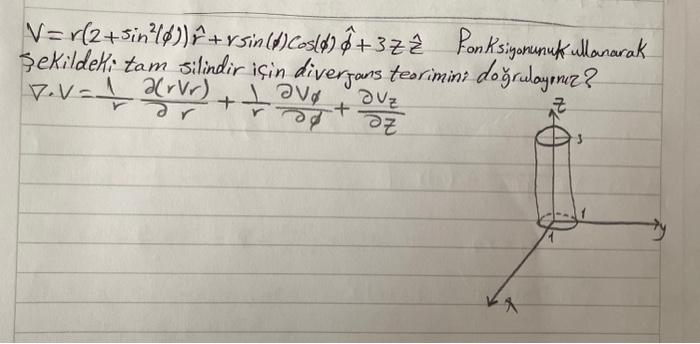 V = r(2+sin²(ϕ)) r̂ + r sin(ϕ) cos(ϕ) ϕ̂ + 3z ẑ Fonksiyonunu kullanarak
Şekildeki tam silindir için diverjans teorimini doğrulayınız?
∇·V = 1/r ∂(rVr)/∂r + 1/r ∂Vϕ/∂ϕ + ∂Vz/∂z
z
3
1
y
1
x